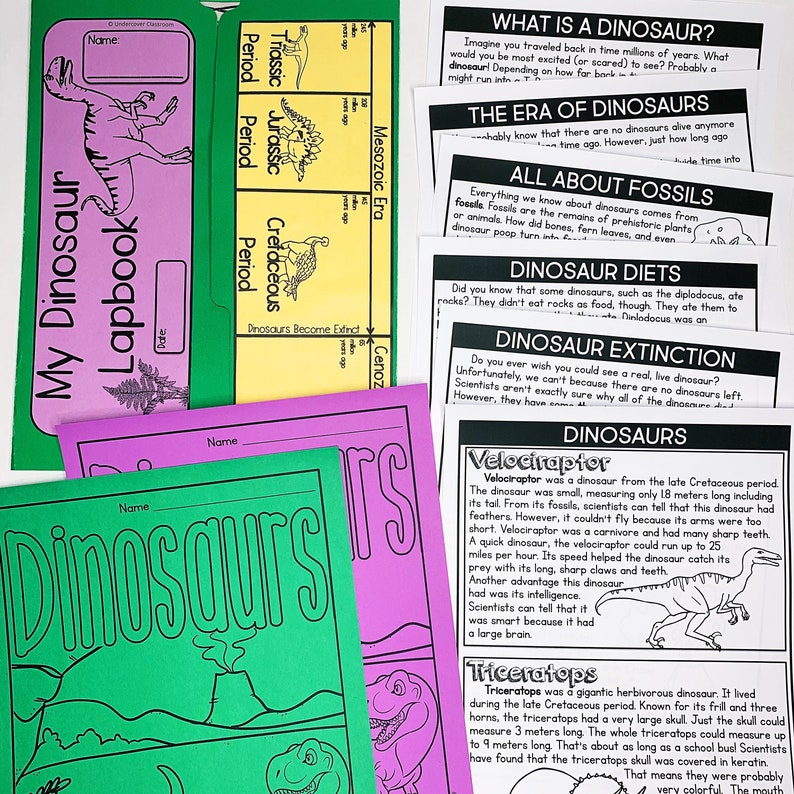 © Undercover Classroom
Name:
My Dinosaur
Lapbook
Date:
245
million
years ago
Triassic
Period
208
million
years ago
Jurassic
Period
145
million
years ago
Cretaceous
Period
Mesozoic Era
Dinosaurs Become Extinct
65
million
years ago
Cenoz
WHAT IS A DINOSAUR?
Imagine you traveled back in time millions of years. What
would you be most excited (or scared) to see? Probably a
dinosaur! Depending on how far back in
might run into a
THE ERA OF DINOSAURS
probably know that there are no dinosaurs alive anymore
long time ago. However, just how long ago
divide time into
ALL ABOUT FOSSILS
Everything we know about dinosaurs comes from
fossils. Fossils are the remains of prehistoric plants
or animals. How did bones, fern leaves, and even
dinosaur poop turn into
DINOSAUR DIETS
Did you know that some dinosaurs, such as the diplodocus, ate
rocks? They didn't eat rocks as food, though. They ate them to
they ate Diplodocus was an
DINOSAUR EXTINCTION
Do you ever wish you could see a real, live dinosaur?
Unfortunately, we can't because there are no dinosaurs left.
Scientists aren't exactly sure why all of the dinosaurs died
However, they have some
DINOSAURS
Velociraptor
Velociraptor was a dinosaur from the late Cretaceous period.
The dinosaur was small, measuring only 1.8 meters long including
its tail. From its fossils, scientists can tell that this dinosaur had
feathers. However, it couldn't fly because its arms were too
short. Velociraptor was a carnivore and had many sharp teeth.
A quick dinosaur, the velociraptor could run up to 25
miles per hour. Its speed helped the dinosaur catch its
prey with its long, sharp claws and teeth.
Another advantage this dinosaur
had was its intelligence.
Scientists can tell that it
was smart because it had
a large brain.
Triceratops
Triceratops was a gigantic herbivorous dinosaur. It lived
during the late Cretaceous period. Known for its frill and three
horns, the triceratops had a very large skull. Just the skull could
measure 3 meters long. The whole triceratops could measure up
to 9 meters long. That's about as long as a school bus! Scientists
have found that the triceratops skull was covered in keratin.
That means they were probably
very colorful. The mouth
Name
Dinosaurs
Name
Dinosaurs